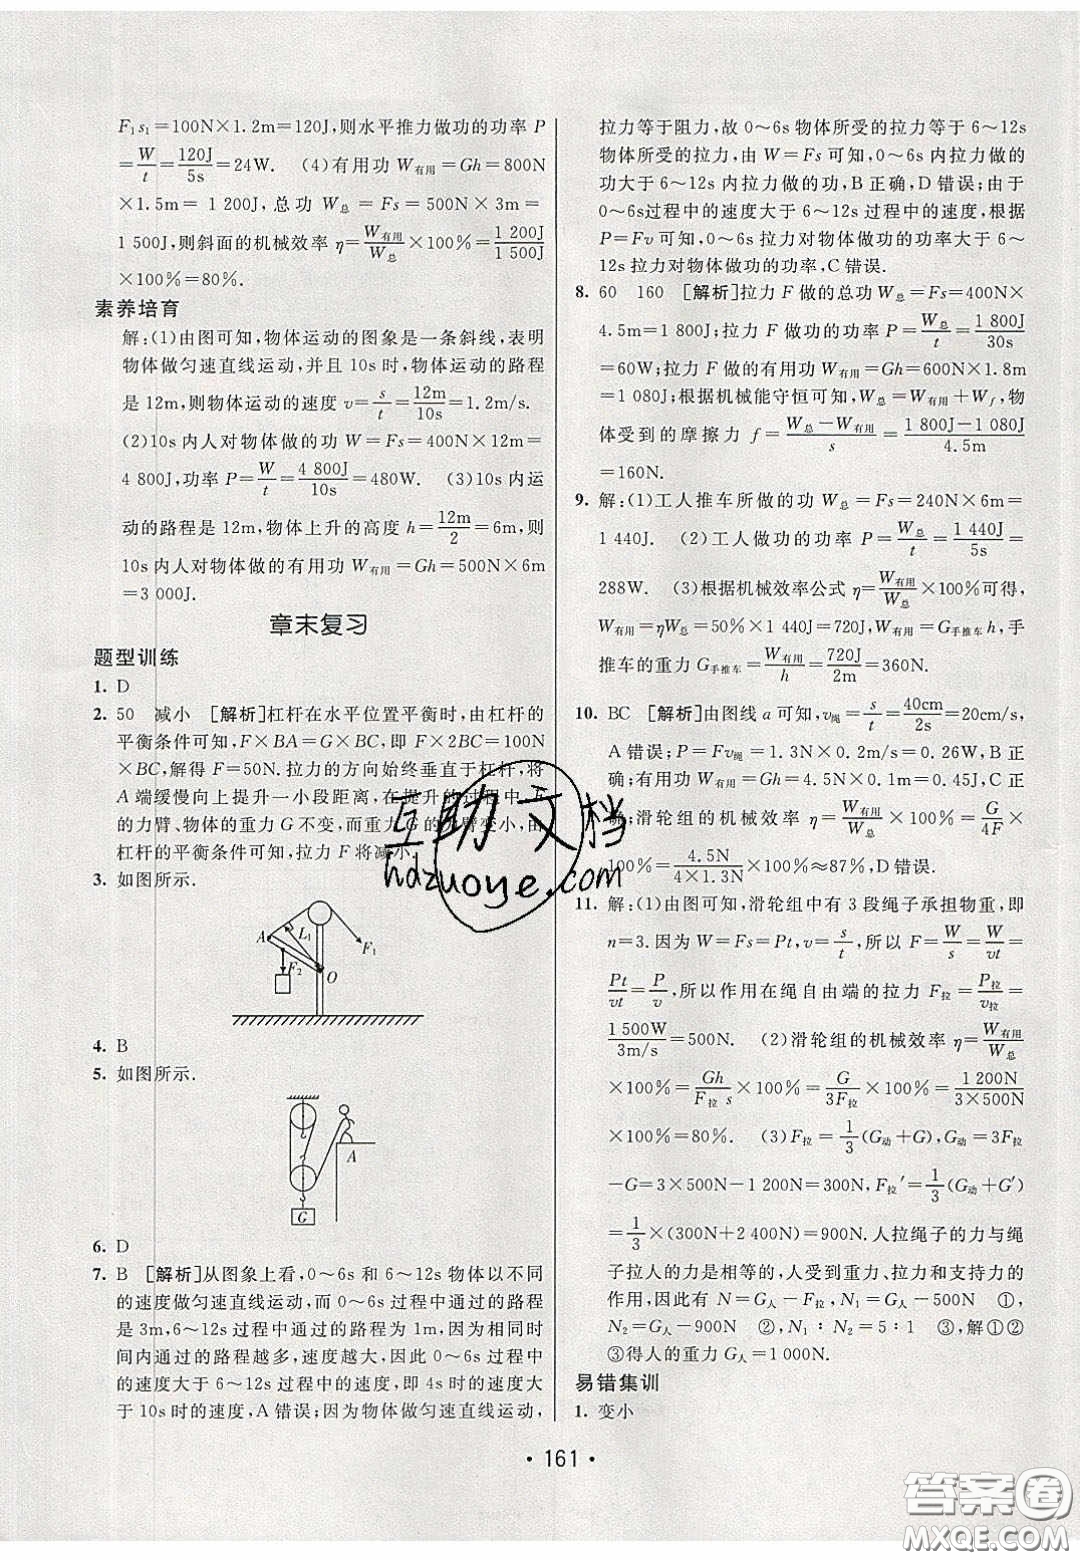 F₁s₁=100N×1.2m=120J,则水平推力做功的功率 P
=W/t=120J/5s=24W. (4)有用功 W有用=Gh=800N
×1.5m= 1 200J,总功 W总=Fs=500N×3m=
1 500J,则斜面的机械效率 η=W有用/W总×100%=1 200J/1 500J
×100%=80%.
素养培育
解:(1)由图可知,物体运动的图象是一条斜线,表明
物体做匀速直线运动,并且 10s 时,物体运动的路程
是 12m,则物体运动的速度 v=s/t=12m/10s=1.2m/s.
(2)10s 内人对物体做的功 W=Fs=400N×12m=
4 800J,功率 P=W/t=4 800J/10s=480W. (3)10s 内运
动的路程是 12m,物体上升的高度 h=12m/2=6m,则
10s 内人对物体做的有用功 W有用=Gh=500N×6m
=3 000J.
章末复习
题型训练
1. D
2. 50 减小 [解析]杠杆在水平位置平衡时,由杠杆的
平衡条件可知,F×BA=G×BC,即 F×2BC=100N
×BC,解得 F=50N.拉力的方向始终垂直于杠杆,将
A 端缓慢向上提升一小段距离,在提升的过程中,F
的力臂、物体的重力 G 不变,而重力 G 的力臂变小,由
杠杆的平衡条件可知,拉力 F 将减小.
3. 如图所示.
A L₁ F₁ F₂ O
4. B
5. 如图所示.
A
G
6. D
7. B [解析]从图象上看,0～6s 和 6～12s 物体以不同
的速度做匀速直线运动,而 0～6s 过程中通过的路程
是 3m,6～12s 过程中通过的路程为 1m,因为相同时
间内通过的路程越多,速度越大,因此 0～6s 过程中
的速度大于 6～12s 过程中的速度,即 4s 时的速度大
于 10s 时的速度,A 错误;因为物体做匀速直线运动,
拉力等于阻力,故 0～6s 物体所受的拉力等于 6～12s
物体所受的拉力,由 W=Fs 可知,0～6s 内拉力做的
功大于 6～12s 内拉力做的功,B 正确,D 错误;由于
0～6s过程中的速度大于 6～12s 过程中的速度,根据
P=Fv 可知,0～6s 拉力对物体做功的功率大于 6～
12s 拉力对物体做功的功率,C 错误.
8. 60 160 [解析]拉力 F 做的总功 W总=Fs=400N×
4.5m=1 800J;拉力 F 做功的功率 P=W总/t=1 800J/30s
=60W;拉力 F 做的有用功 W有用=Gh=600N×1.8m
=1 080J;根据机械能守恒可知,W总=W有用+Wf,物
体受到的摩擦力 f=(W总-W有用)/s=(1 800J-1 080J)/4.5m
=160N.
9. 解:(1)工人推车所做的功 W总=Fs=240N×6m=
1 440J. (2)工人做功的功率 P=W总/t=1 440J/5s=
288W. (3)根据机械效率公式 η=W有用/W总×100%可得,
W有用=ηW总=50%×1 440J=720J,W有用=G手推车h,手
推车的重力 G手推车=W有用/h=720J/2m=360N.
10. BC [解析]由图线 a 可知,v绳=s/t=40cm/2s=20cm/s,
A 错误;P=Fv绳=1.3N×0.2m/s=0.26W,B 正
确;有用功 W有用=Gh=4.5N×0.1m=0.45J,C 正
确;滑轮组的机械效率 η=W有用/W总×100%=G/4F×
100%=4.5N/(4×1.3N)×100%≈87%,D 错误.
11. 解:(1)由图可知,滑轮组中有 3 段绳子承担物重,即
n=3.因为 W=Fs=Pt,v=s/t,所以 F=W/s=W/vt=
Pt/vt=P/v,所以作用在绳自由端的拉力 F拉=P拉/v拉=
1 500W/3m/s=500N. (2)滑轮组的机械效率 η=W有用/W总
×100%=Gh/F拉s×100%=G/3F拉×100%=1 200N/(3×500N)
×100%=80%. (3)F拉=1/3(G动+G),G动=3F拉
-G=3×500N-1 200N=300N,F拉′=1/3(G动+G′)
=1/3×(300N+2 400N)=900N.人拉绳子的力与绳
子拉人的力是相等的,人受到重力、拉力和支持力的
作用,因此有 N=G人-F拉,N₁=G人-500N ①,
N₂=G人-900N ②,N₁∶N₂=5∶1 ③,解①②
③得人的重力 G人=1 000N.
易错集训
1. 变小
• 161 •
互助文档
hdzuoye.com
答案圈
MXQE.COM